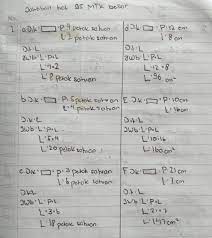 Jawaban hal 95 MTK besar
No
1
a. Dik: P: 4 petak satuan
L: 2 petak satuan
Dit: L
Jwb: L: P×L
L: 4×2
L: 8 petak satuan
b. Dik: P: 5 petak satuan
L: 4 petak satuan
Dit: L
Jwb: L: P×L
L: 5×4
L: 20 petak satuan
c. Dik: P: 3 petak satuan
L: 6 petak satuan
Dit: L
Jwb: L: P×L
L: 3×6
L: 18 petak satuan
d. Dik: P: 12 cm
L: 8 cm
Dit: L
Jwb: L: P×L
L: 12×8
L: 96 cm²
E. Dik: P: 10 cm
Dit: L
Jwb: L: P×L
F. Dik: P: 21 cm
Dit: L
Jwb: L: P×L
L: 147 cm²